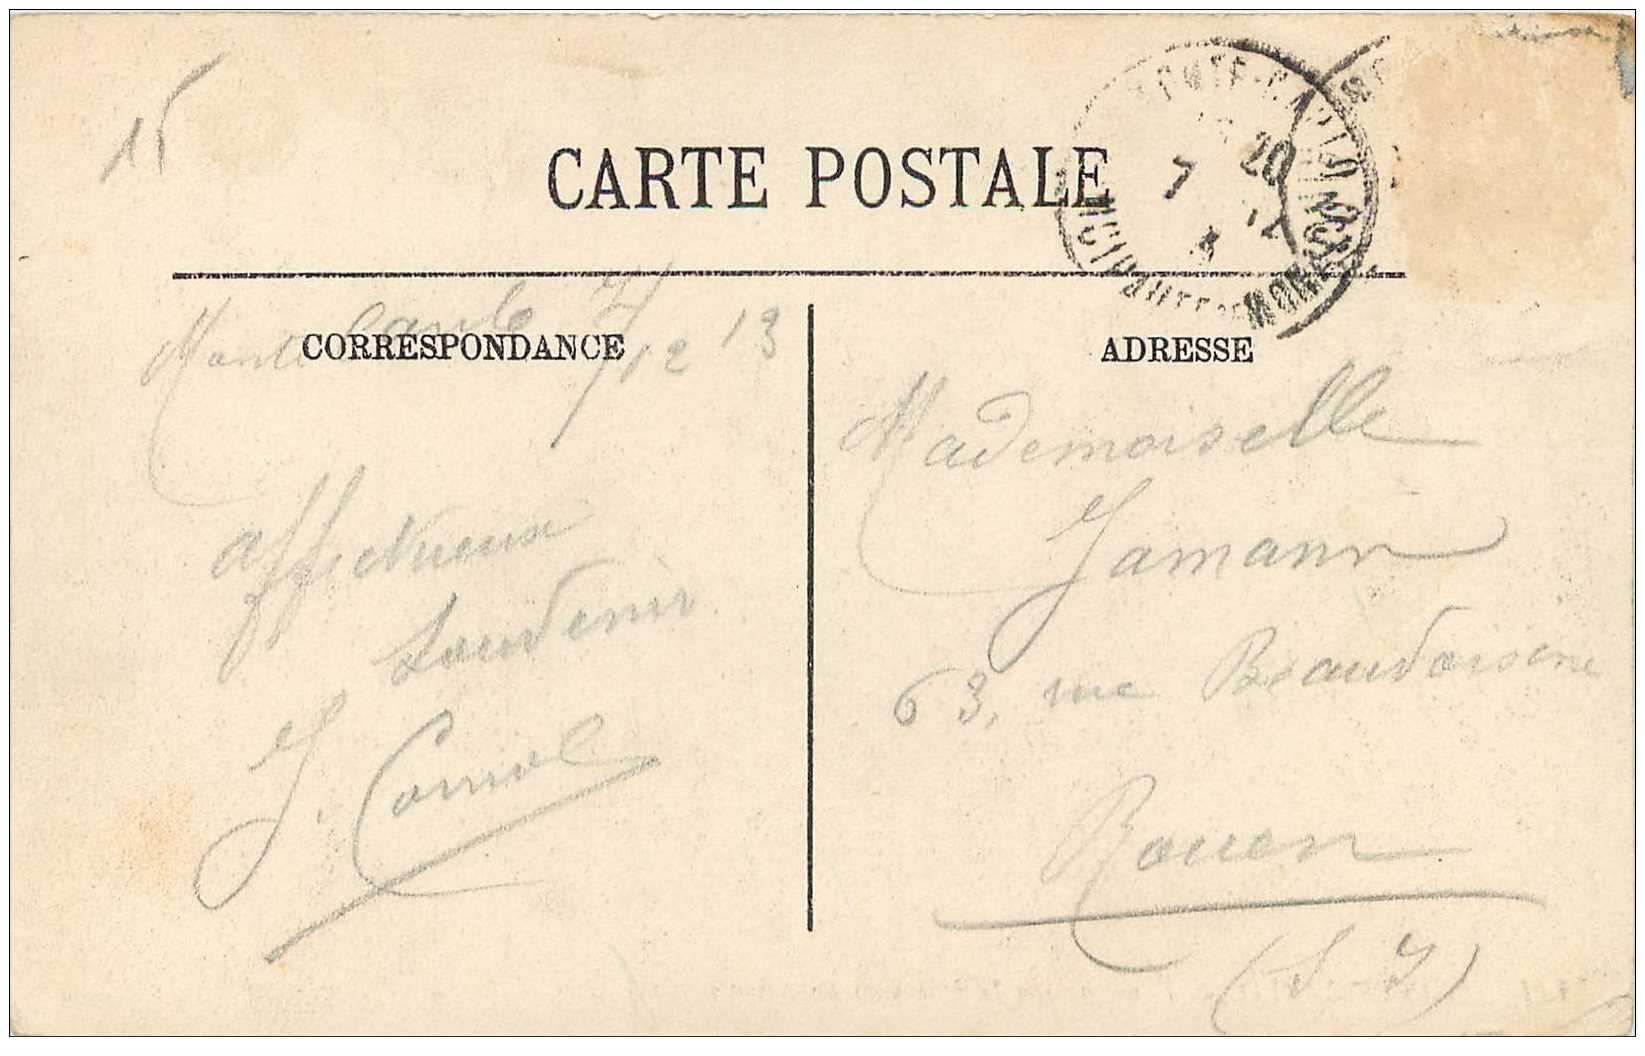 15
CARTE POSTALE
MONTE-CARLO
7 12
20
MONACO
CORRESPONDANCE
ADRESSE
Monte Carlo 7/12 13
affectueux
souvenir
J. Cornol
Mademoiselle
Jamann
63, rue Beauvoisine
Rouen
(S I)